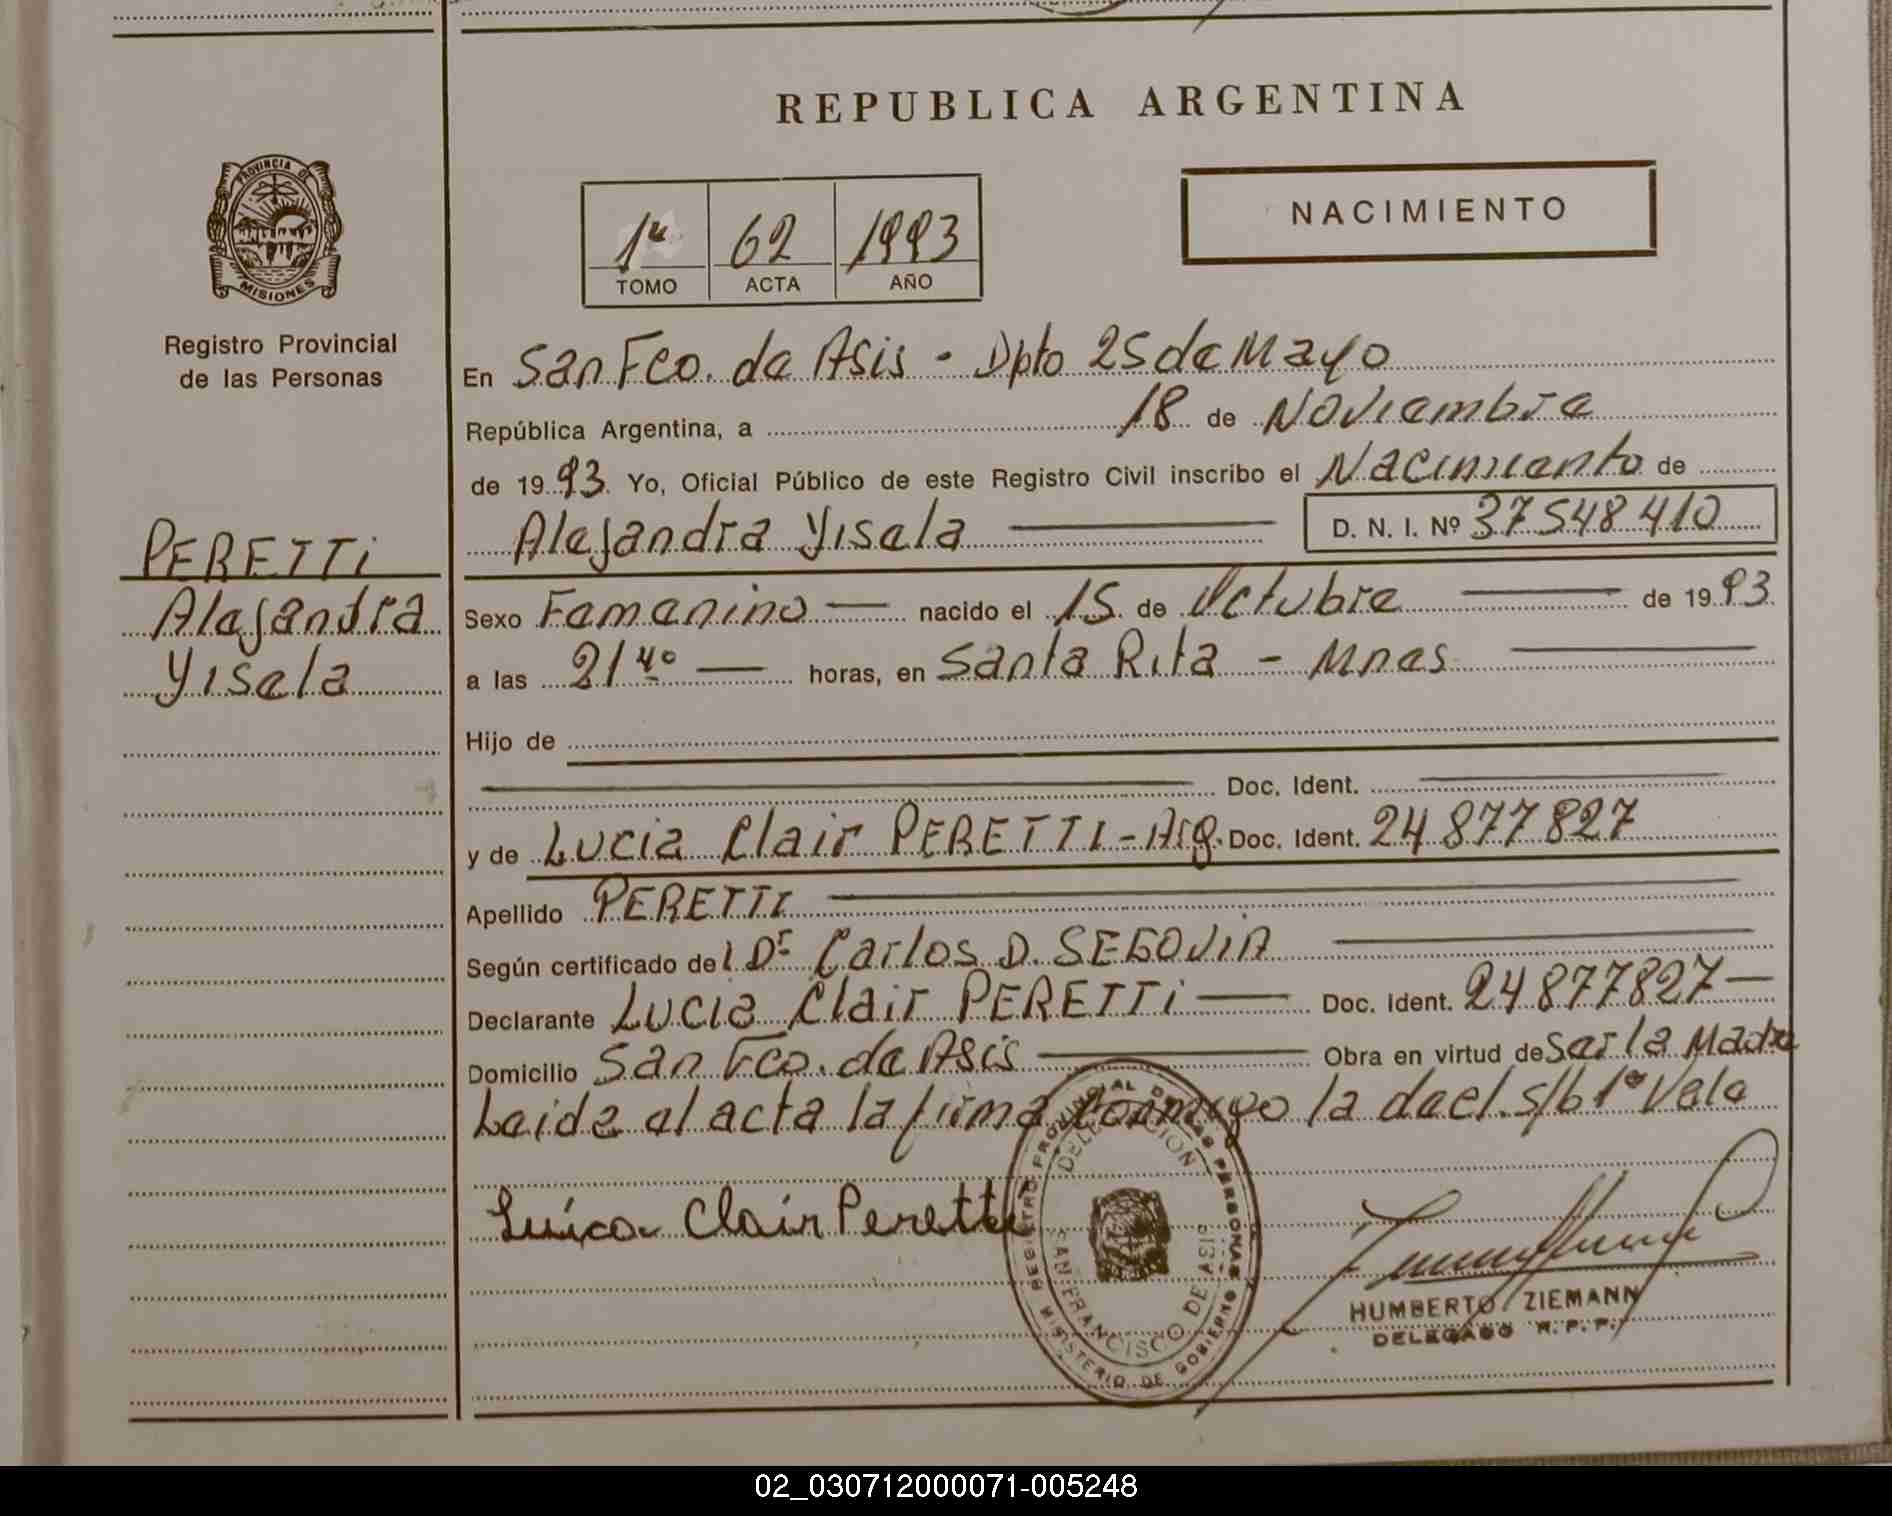 REPUBLICA ARGENTINA
PROVINCIA DE
MISIONES
Registro Provincial
de las Personas
1º 62 1993
TOMO ACTA AÑO
NACIMIENTO
En San Fco. de Asis - Dpto 25 de Mayo
República Argentina, a 18 de Noviembre
de 1993 Yo, Oficial Público de este Registro Civil inscribo el Nacimiento de
Alejandra Yisela D. N. I. Nº 37548410
PERETTi
Alejandra
Yisela
Sexo Femenino nacido el 15 de Octubre de 1993
a las 21 40 horas, en Santa Rita - Mnes
Hijo de
Doc. Ident.
y de Lucia Clair PERETTI - Arg. Doc. Ident. 24877827
Apellido PERETTI
Según certificado del Dr Carlos D. SEGOVIA
Declarante Lucia Clair PERETTi Doc. Ident. 24877827
Domicilio San Fco. de Asis Obra en virtud de Ser la Madre
Leida el acta la firma conmigo la decl. s/b 1º Vale
Luica Clair Peretti
REGISTRO PROVINCIAL DE LAS PERSONAS
MINISTERIO DE GOBIERNO
DELEGACION
SAN FRANCISCO DE ASIS
HUMBERTO ZIEMANN
DELEGADO R. P. P.
02_030712000071-005248